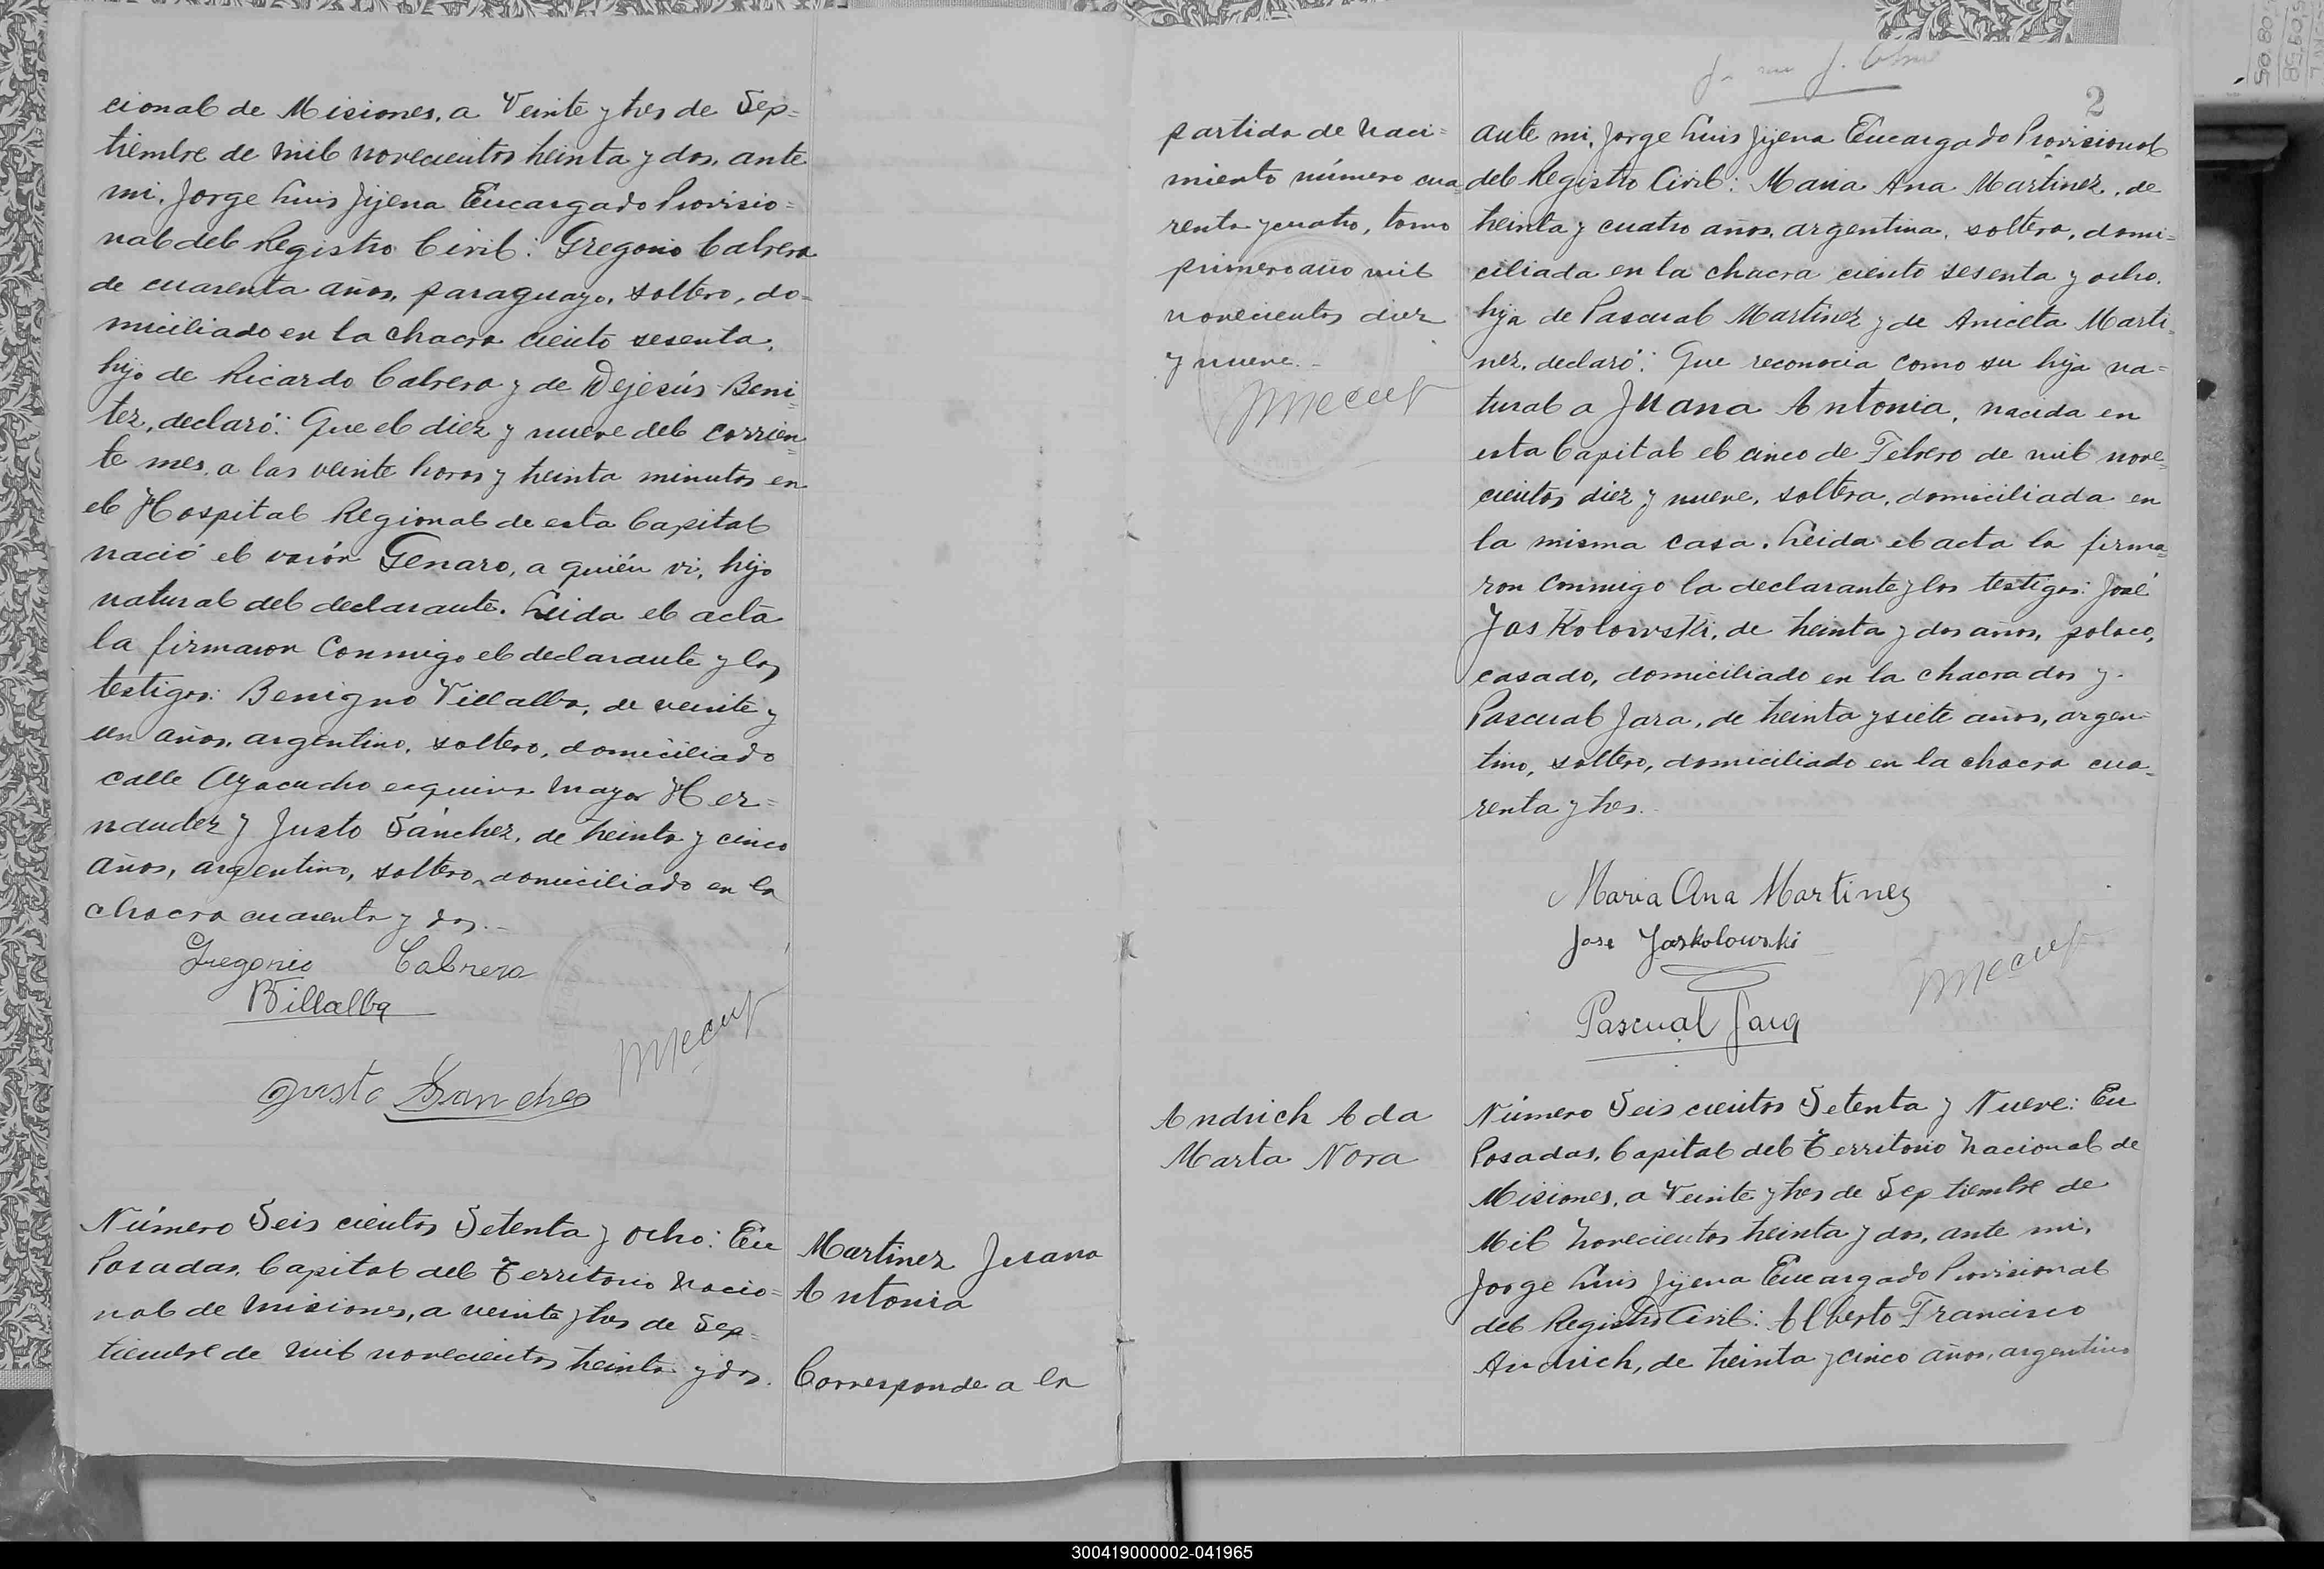 cional de Misiones, a Veinte y tres de Sep=
tiembre de mil novecientos treinta y dos, ante
mi, Jorge Luis Jijena Encargado Provisio=
nal del Registro Civil: Gregorio Cabrera
de cuarenta años, paraguayo, soltero, do=
miciliado en la chacra ciento sesenta,
hijo de Ricardo Cabrera y de Dejesús Beni=
tez, declaró: Que el diez y nueve del corrien=
te mes, a las veinte horas y treinta minutos en
el Hospital Regional de esta Capital
nació el varón Genaro, a quién vi, hijo
natural del declarante. Leida el acta
la firmaron conmigo el declarante y los
testigos: Benigno Villalba, de veinte y
un años, argentino, soltero, domiciliado
calle Ayacucho esquina Mayor Her=
nandez y Justo Sánchez, de treinta y cinco
años, argentino, soltero, domiciliado en la
chacra cuarenta y dos.-
Gregorio Cabrera
B Villalba
Justo Sanches
Número Seis cientos Setenta y ocho: En
Posadas, Capital del Territorio Nacio=
nal de Misiones, a veinte y tres de Sep=
tiembre de mil novecientos treinta y dos.
Martinez Juana
Antonia
Corresponde a la
partida de naci=
miento número cua=
renta y cuatro, tomo
primero año mil
novecientos diez
y nueve.-
2
ante mi, Jorge Luis Jijena Encargado Provisional
del Registro Civil: Maria Ana Martinez, de
treinta y cuatro años, argentina, soltera, domi=
ciliada en la chacra ciento sesenta y ocho,
hija de Pascual Martinez y de Aniceta Marti=
nez, declaró: Que reconocia como su hija na=
tural a Juana Antonia, nacida en
esta Capital el cinco de Febrero de mil nove=
cientos diez y nueve, soltera, domiciliada en
la misma casa. Leida el acta la firma=
ron conmigo la declarante y los testigos: José
Jaskolowski, de treinta y dos años, polaco,
casado, domiciliado en la chacra dos y
Pascual Jara, de treinta y siete años, argen=
tino, soltero, domiciliado en la chacra cua=
renta y tres.-
Maria Ana Martinez
Jose Jaskolowski
Pascual Jara
Andrich Ada
Marta Nora
Número Seis cientos Setenta y Nueve: En
Posadas, Capital del Territorio Nacional de
Misiones, a Veinte y tres de Septiembre de
Mil Novecientos treinta y dos, ante mi,
Jorge Luis Jijena Encargado Provisional
del Registro Civil: Alberto Francisco
Andrich, de treinta y cinco años, argentino
300419000002-041965